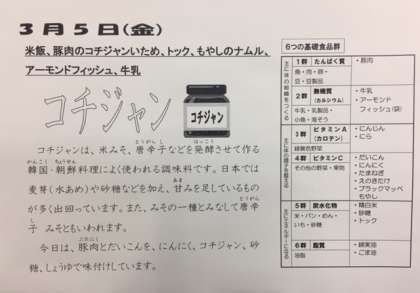 3月5日(金)
米飯、豚肉のコチジャンいため、トック、もやしのナムル、
アーモンドフィッシュ、牛乳
コチジャン
コチジャン
コチジャンは、米みそ、唐辛子などを発酵させて作る
韓国・朝鮮料理によく使われる調味料です。日本では
麦芽(水あめ)や砂糖などを加え、甘みを足しているもの
が多く出回っています。また、みその一種とみなして唐辛
子みそともいわれます。
今日は、豚肉とだいこんを、にんにく、コチジャン、砂
糖、しょうゆで味付けしています。
6つの基礎食品群
主に体の組織をつくる
1群 たんぱく質
魚・肉・卵・
豆・豆製品
・豚肉
2群 無機質
(カルシウム)
牛乳・乳製品・
小魚・海そう
・牛乳
・アーモンド
フィッシュ(袋)
主に体の調子を整える
3群 ビタミンA
(カロテン)
緑黄色野菜
・にんじん
・にら
4群 ビタミンC
その他の野菜・果物
・だいこん
・にんにく
・たまねぎ
・えのきたけ
・ブラックマッペ
もやし
主にエネルギーになる
5群 炭水化物
米・パン・めん・
いも・砂糖
・精白米
・砂糖
・トック
6群 脂質
油脂
・綿実油
・ごま油